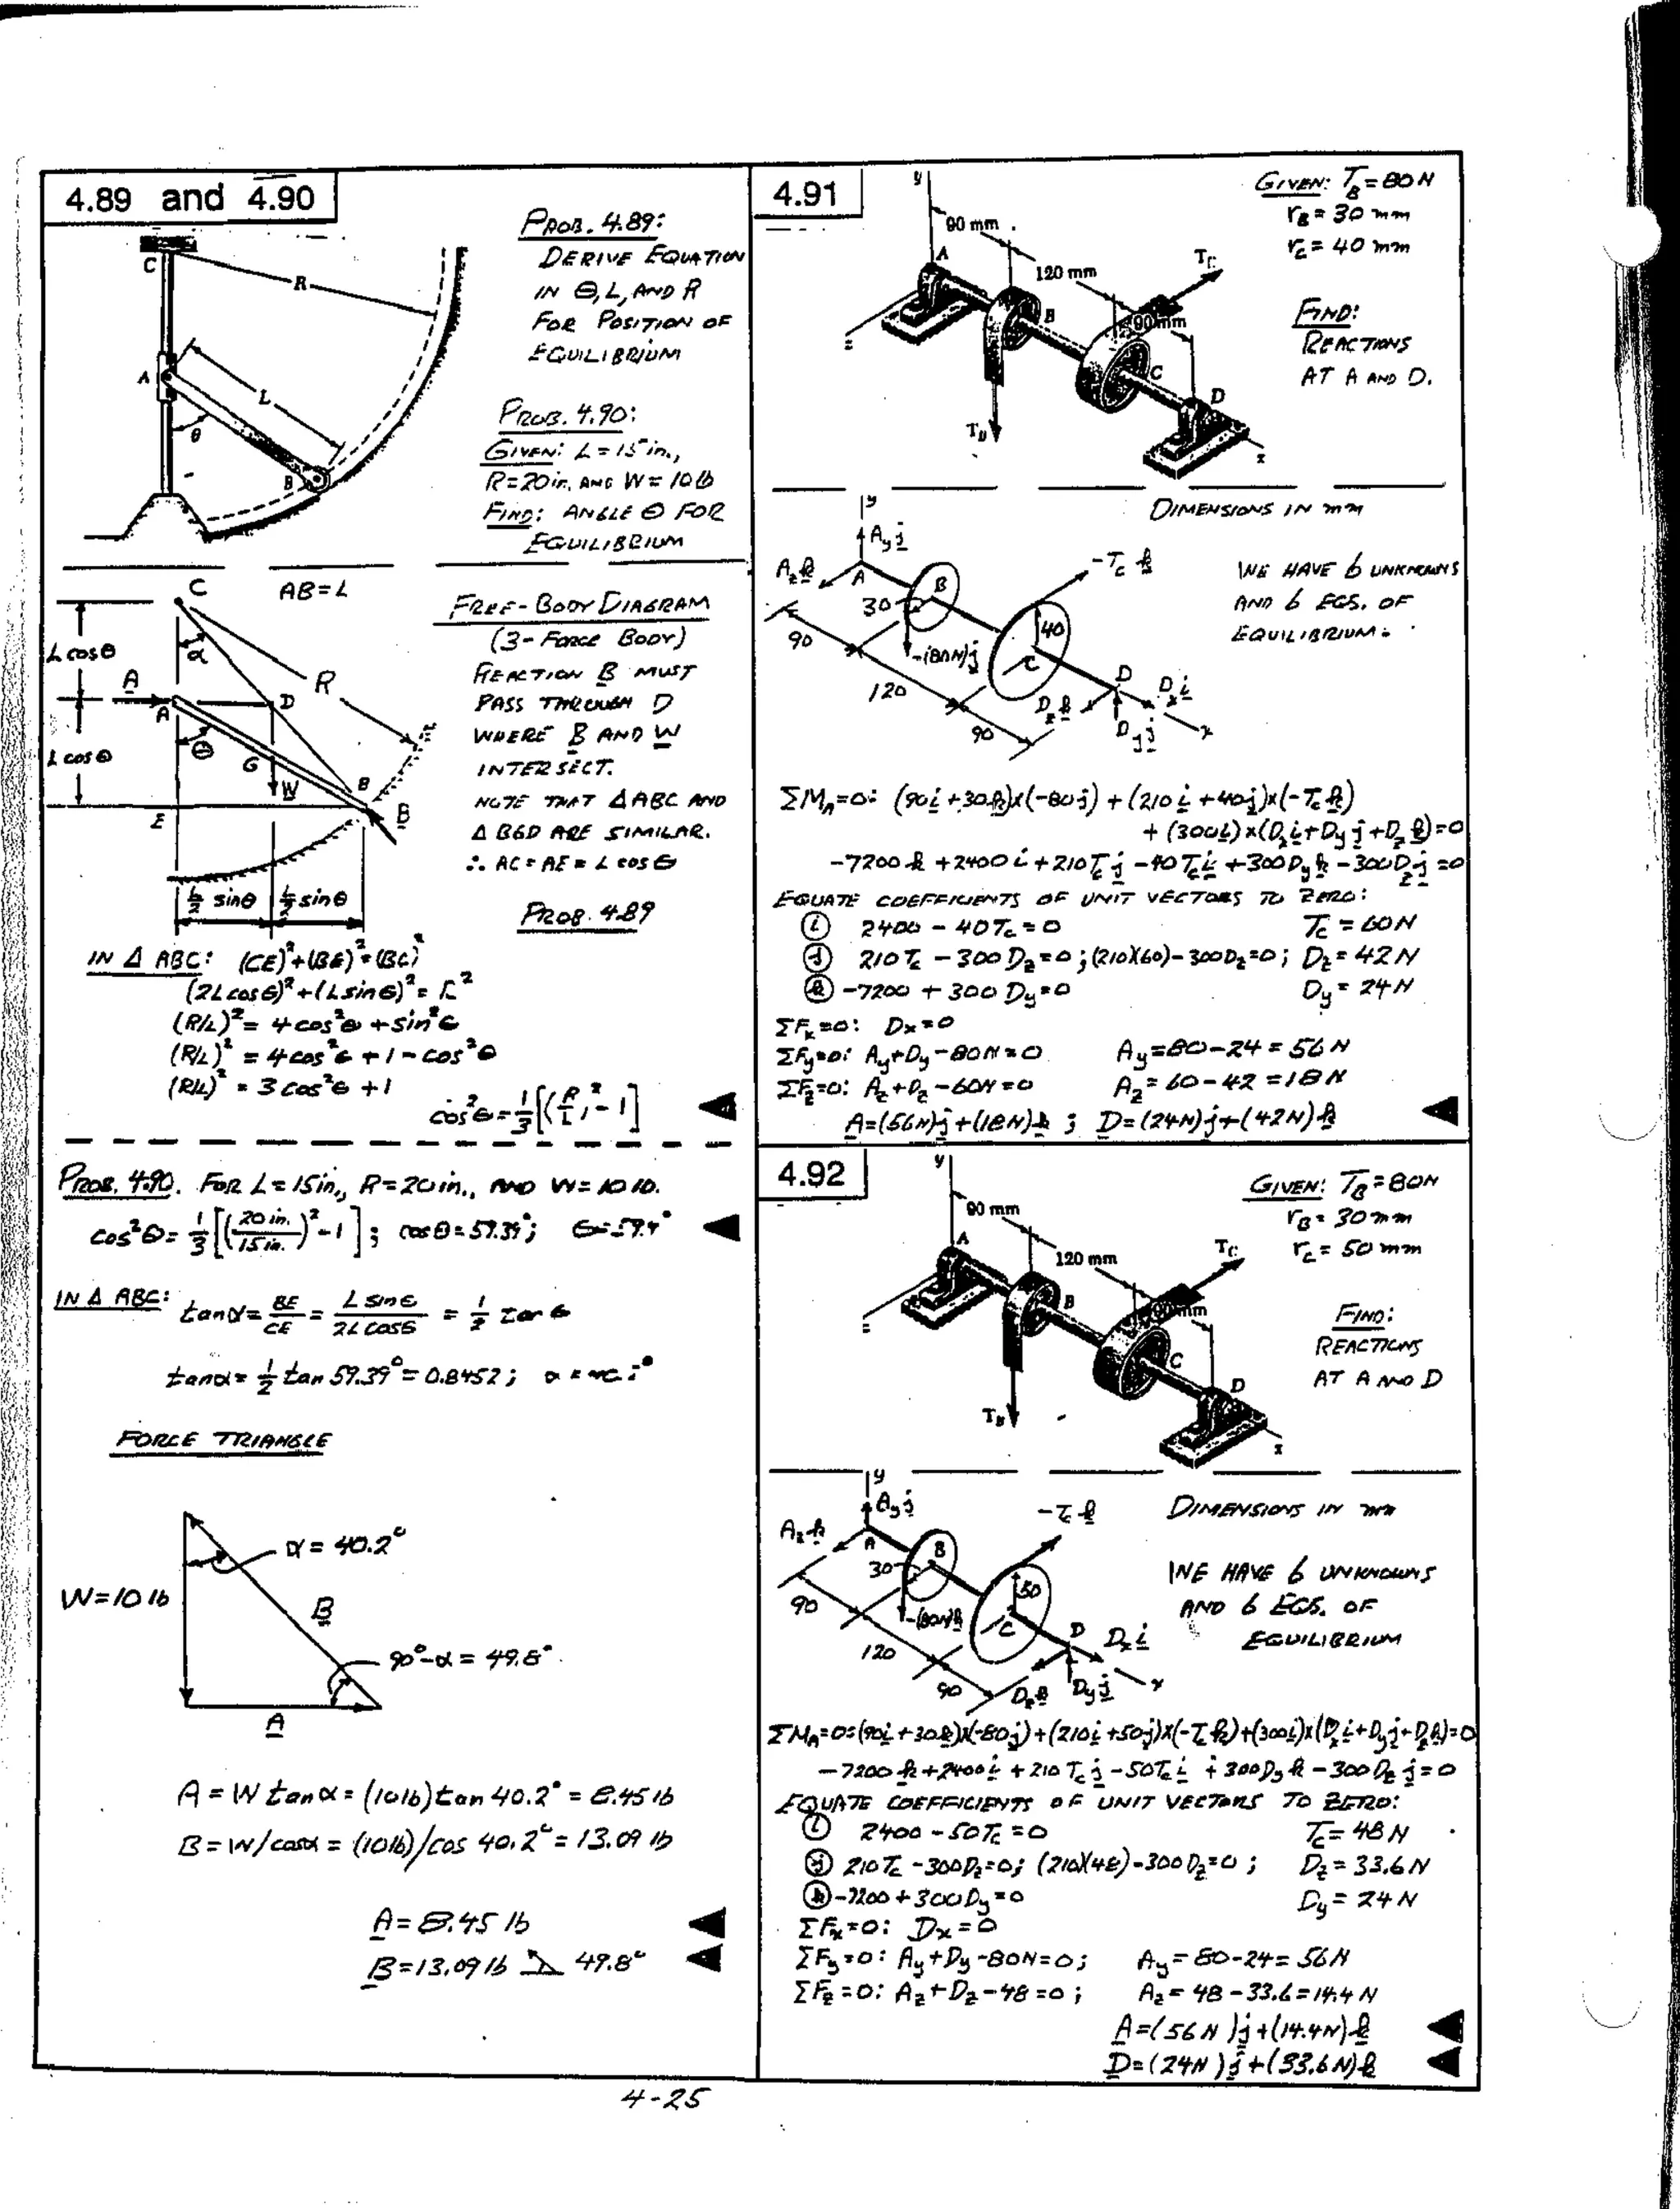 4.89 and 4.90
PROB. 4.89:
DERIVE EQUATION
IN θ, L, AND R
FOR POSITION OF
EQUILIBRIUM
PROB. 4.90:
GIVEN: L = 15 in.,
R=20in. AND W = 10 lb
FIND: ANGLE θ FOR
EQUILIBRIUM
C
R
A
L
θ
B
AB = L
FREE-BODY DIAGRAM
(3-FORCE BODY)
REACTION B MUST
PASS THROUGH D
WHERE B AND W
INTERSECT.
NOTE THAT ΔABC AND
ΔBGD ARE SIMILAR.
∴ AC = AE = L cosθ
PROB. 4.89
C
α
L cosθ
R
A
A
D
θ
G
L cosθ
W
B
B
E
L/2 sinθ L/2 sinθ
IN Δ ABC: (CE)²+(BE)²=(BC)²
(2L cosθ)²+(L sinθ)² = R²
(R/L)² = 4cos²θ + sin²θ
(R/L)² = 4cos²θ + 1 - cos²θ
(R/L)² = 3 cos²θ + 1
cos²θ = 1/3 [(R/L)² - 1]
PROB. 4.90. FOR L = 15in., R=20in., AND W = 10 lb.
cos²θ = 1/3 [(20 in./15 in.)² - 1]; cosθ = 57.39°; θ = 57.4°
IN Δ ABC: tanα = BE/CE = L sinθ/2L cosθ = 1/2 tan θ
tanα = 1/2 tan 59.39° = 0.8452; α =
FORCE TRIANGLE
α = 40.2°
W=10 lb
B
90°-α = 49.8°
A
A = W tan α = (10 lb) tan 40.2° = 8.45 lb
B = W/cosα = (10 lb)/cos 40.2° = 13.09 lb
A = 8.45 lb
B = 13.09 lb 49.8°
4.91
GIVEN: T_B = 80 N
r_B = 30 mm
r_C = 40 mm
FIND:
REACTIONS
AT A AND D.
y
90 mm
A
120 mm
T_C
B
90mm
C
D
T_B
z
x
DIMENSIONS IN mm
WE HAVE 6 UNKNOWNS
AND 6 EQS. OF
EQUILIBRIUM.
y
A_y j
A_z k
A
B
-T_C k
30
40
90
-(80N)j
C
120
D
D_x i
D_z k
D_y j
90
x
ΣM_A=0: (90i+30k)x(-80j) + (210i+40j)x(-T_C k)
+ (300i)x(D_x i+D_y j+D_z k)=0
-7200k + 2400i + 210T_C j - 40T_C i + 300D_y k - 300D_z j = 0
EQUATE COEFFICIENTS OF UNIT VECTORS TO ZERO:
(i) 2400 - 40T_C = 0 T_C = 60N
(j) 210T_C - 300D_z = 0; (210)(60)-300D_z=0; D_z = 42N
(k) -7200 + 300D_y = 0 D_y = 24N
ΣF_x=0: D_x=0
ΣF_y=0: A_y+D_y-80N=0 A_y=80-24=56N
ΣF_z=0: A_z+D_z-60N=0 A_z=60-42=18N
A=(56N)j+(18N)k; D=(24N)j+(42N)k
4.92
GIVEN: T_B = 80N
r_B = 30mm
r_C = 50mm
FIND:
REACTIONS
AT A AND D
y
90 mm
A
120 mm
T_C
B
90mm
C
D
T_B
z
x
DIMENSIONS IN mm
WE HAVE 6 UNKNOWNS
AND 6 EQS. OF
EQUILIBRIUM
y
A_y j
A_z k
A
B
-T_C k
30
50
90
-(80N)k
C
120
D
D_x i
90
D_z k
D_y j
x
ΣM_A=0: (90i+30k)x(-80j)+(210i+50j)x(-T_C k)+(300i)x(D_x i+D_y j+D_z k)=0
-7200k+2400i+210T_C j-50T_C i+300D_y k-300D_z j=0
EQUATE COEFFICIENTS OF UNIT VECTORS TO ZERO:
(i) 2400-50T_C=0 T_C=48N
(j) 210T_C-300D_z=0; (210)(48)-300D_z=0; D_z=33.6N
(k) -7200+300D_y=0 D_y=24N
ΣF_x=0: D_x=0
ΣF_y=0: A_y+D_y-80N=0; A_y=80-24=56N
ΣF_z=0: A_z+D_z-48=0; A_z=48-33.6=14.4N
A=(56N)j+(14.4N)k
D=(24N)j+(33.6N)k
4-25